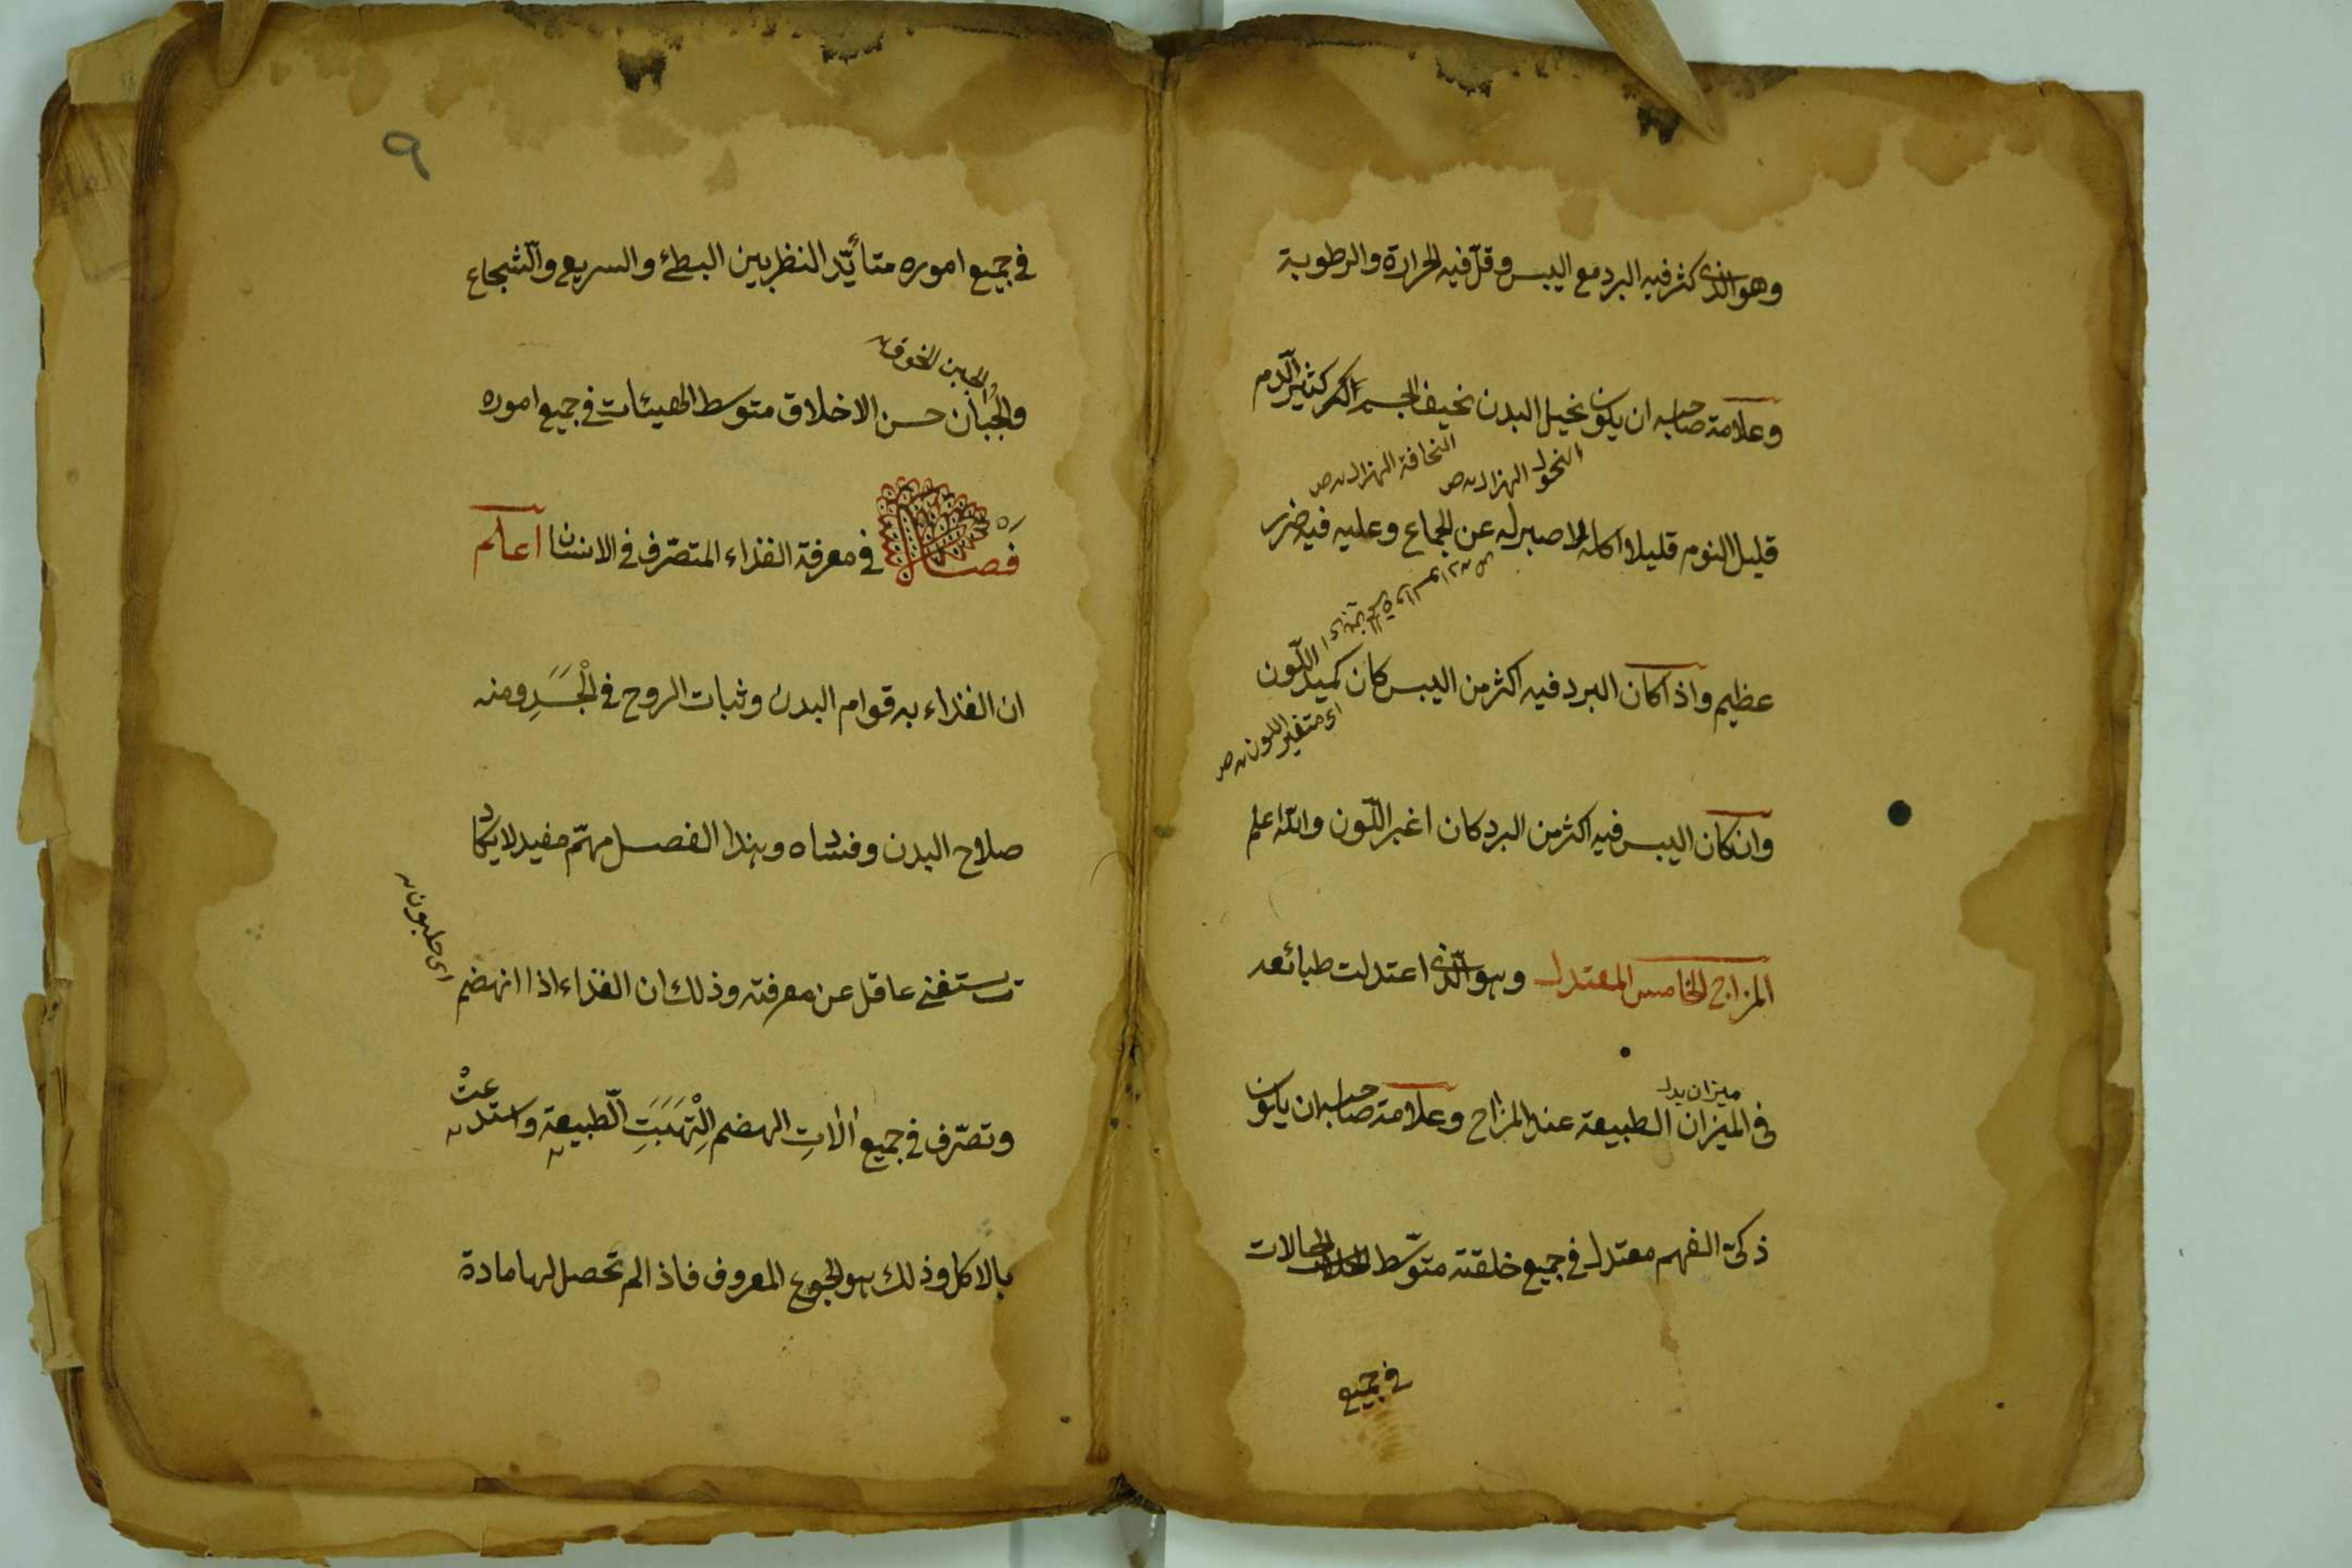 وهو الذى كثر فيه البرد مع اليبس وقلّ فيه الحرارة والرطوبة
وعلامة صاحبه ان يكون نحيل البدن نحيف الجسم اكمر كثير الدم
النحول الهزال ص
النحافة الهزال ص
قليل النوم قليلا اكله لا صبر له عن الجماع وعليه فيه ضرر
عظيم واذا كان البرد فيه اكثر من اليبس كان كميد اللّون
اى متغير اللون ص
وان كان اليبس فيه اكثر من البرد كان اغبر اللّون والله اعلم
المزاج الخامس المعتدل وهو الّذى اعتدلت طبائعه
ميزان بدل
فى الميزان الطبيعة عند المزاج وعلامة صاحبه ان يكون
ذكىّ الفهم معتدل فى جميع خلقته متوسّط الحالات
فى جميع
٩
فى جميع اموره متأيّد النظر بين البطئ والسريع والشجاع
الجبن الخوف
والجُبَان حسن الاخلاق متوسط الهيئات فى جميع اموره
فَصْل فى معرفة الغذاء المتصّرف فى الانسان اعلم
ان الغذاء به قوام البدن وثبات الروح فى الْجَسَدِ ومنه
صلاح البدن وفساده وهذا الفصل مهمّ مفيد لا يكاد
يستغنى عاقل عن معرفته وذلك ان الغذاء اذا انهضم
وتصّرف فى جميع الاتِ الهضم اِلْتَهَبَتِ الطّبيعة واستدعتْ
بالاكل وذلك هو الجوع المعروف فاذا لم تحصل لها مادة